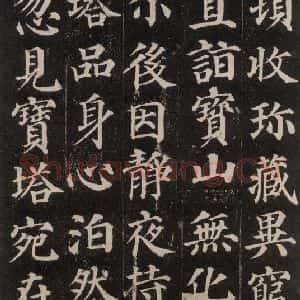 頃收珍藏異窮
直詣寶山無化
尔後因靜夜持
塔品身心泊然
忽見寶塔宛在